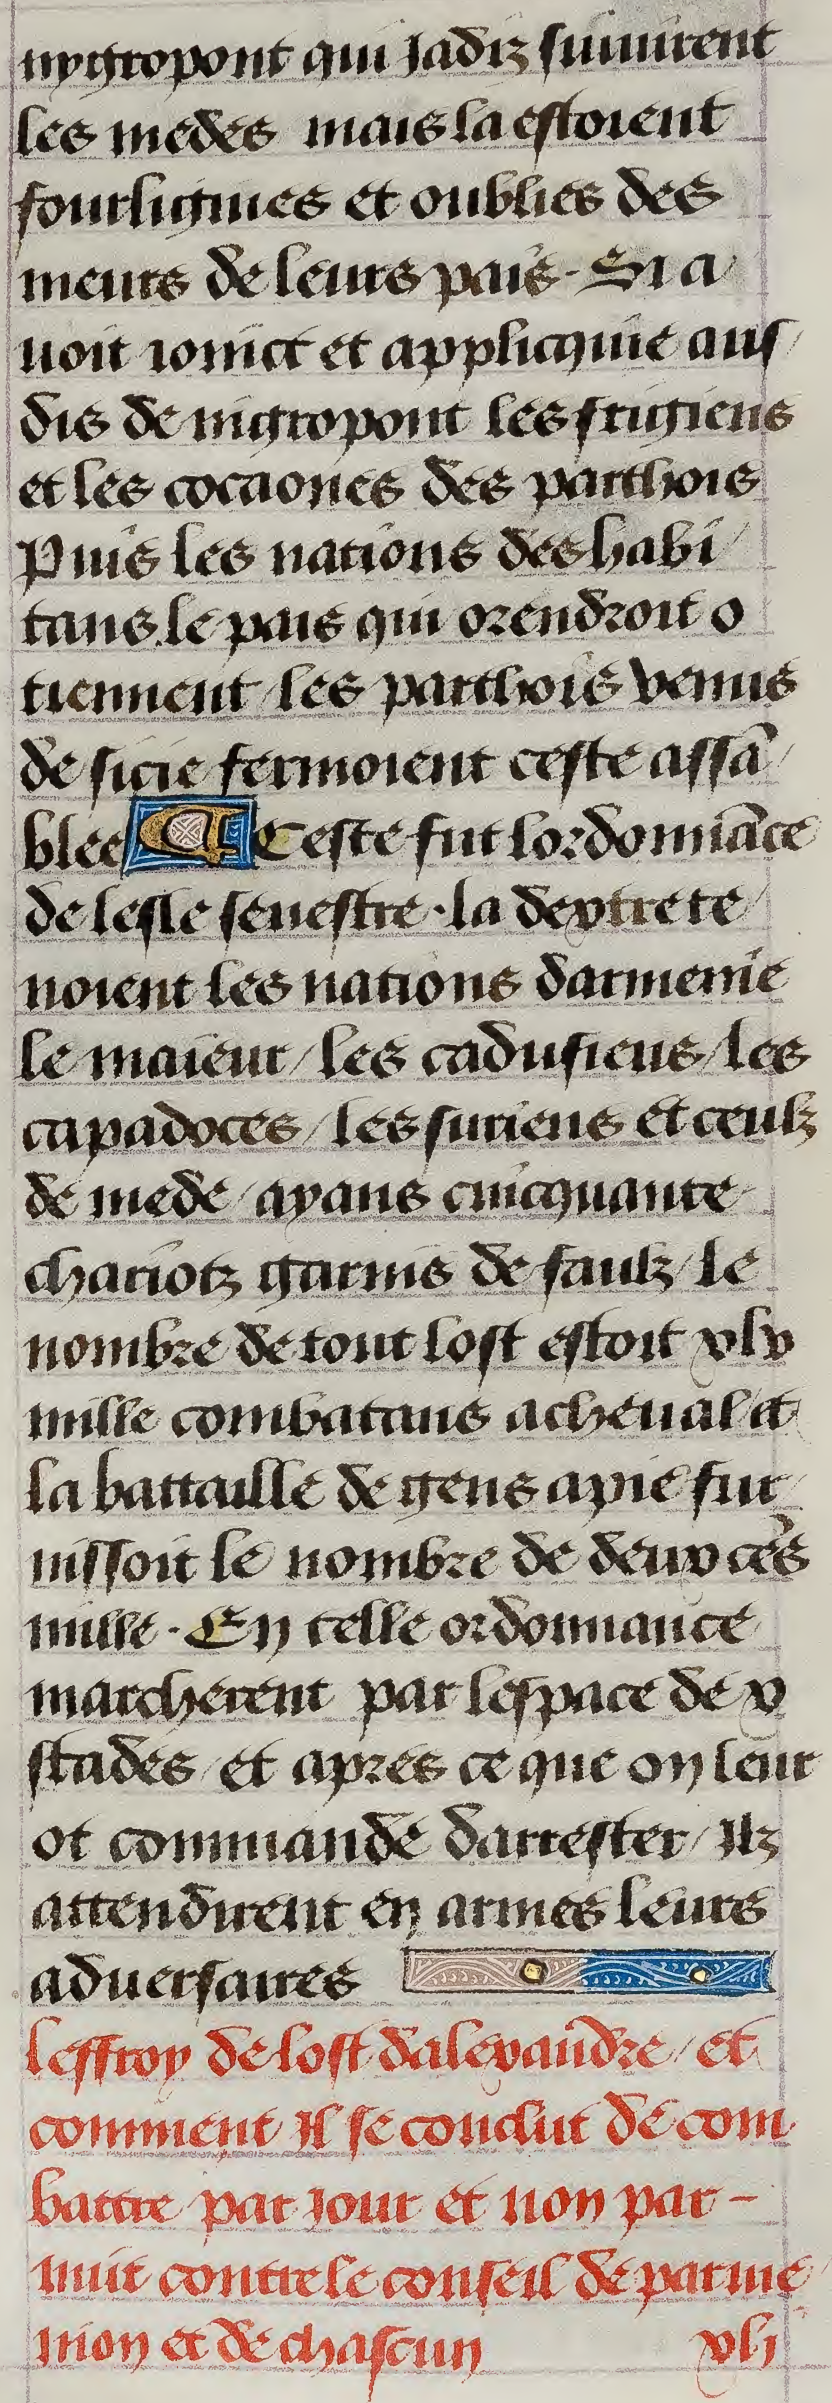 nygropont qui Jadiz suiuirent
les medes mais la estoient
fourlignies et oublies des
meurs de leurs pais. Si a/
uoit ioinct et applicquie aus/
dis de nigropont les frigiens
et les cocaones des parthois
Puis les nations des habi/
tans le pais qui orendroit o
tiennent/les parthois venus
de sicie fermoient ceste assā/
blee Ceste fut lordonnāce
de lesle senestre. la dextre te/
noient les nations darmenie
le maieur/les cadusiens/les
capadoces/les suriens et ceulz
de mede/ayans cincquante
chariotz garnis de faulz/le
nombre de tout lost estoit xlv
mille combatans acheual et
la battaille de gens apie fur/
nissoit le nombre de deux cēs
mille. En celle ordonnance
marcherent par lespace de x
stades/et apres ce que on leur
ot commande darrester/Ilz
attendirent en armes leurs
aduersaires
leffroy de lost dalexandre/et
comment Il se conclut de com
batre par Jour et non par-
nuit contre le conseil de parme/
nion et de chascun xlj